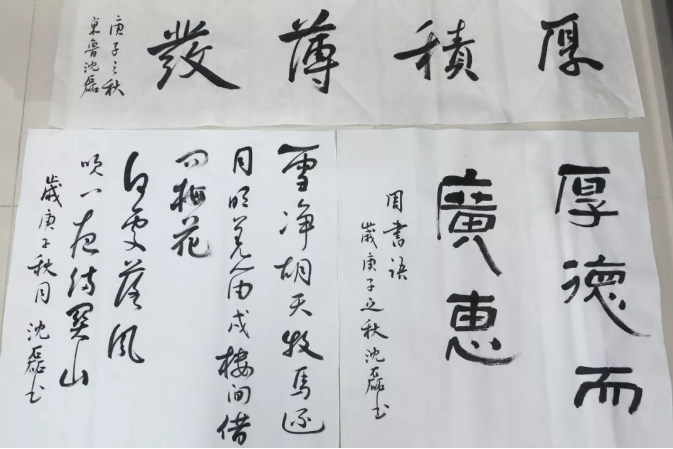 厚積薄發
庚子之秋
東魯沈磊
厚德而
廣惠
周書語
歲庚子之秋沈磊书
雪净胡天牧馬还
月明羌笛戍樓间借
问梅花
何處落风
吹一夜满關山
歲庚子秋月沈磊书